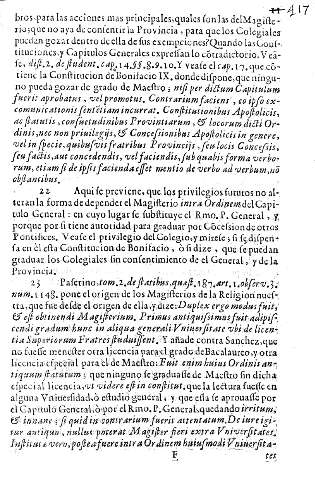 417
bros para las acciones mas principales, quales son las del Magiste-
rio; que no aya de consentir la Provincia, para que los Colegiales
puedan gozar dentro de ella de sus exempciones? Quando las Cons-
tituciones, y Capitulos Generales expressan lo contradictorio. Vea-
se, dist. 2. de student, cap. 14. §§. 8. 9. 10. Y vease el cap. 17. que co-
tiene la Constitucion de Bonifacio IX, donde dispone, que ningu-
no pueda gozar de grado de Maestro; nisi per dictum Capitulum
fuerit aprobatus, vel promotus. Contrarium facient, eo ipso ex-
communicationis sententiam incurrat. Constitutionibus Apostolicis,
ac statutis, consuetudinibus Provinciarum, & locorum dicti Or-
dinis, nec non privilegijs, & Concesionibus Apostolicis in genere,
vel in specie. quibusvis fratribus Provincijs, seu locis Concessis,
seu factis, aut concedendis, vel faciendis, sub quabis forma verbo-
rum, etiam si de ipsis facienda esset mentio de verbo ad verbum, nō
obstantibus.
22 Aqui se previene, que los privilegios futuros no al-
teran la forma de depender el Magisterio intra Ordinem del Capi-
tulo General: en cuyo lugar se substituye el Rmo. P. General, y
porque por si tiene autoridad para graduar por Cocesion de otros
Pontifices. Vease el privilegio del Colegio, y mirese, si se dispen-
sa en èl esta Constitucion de Bonifacio, ò si dize, que se puedan
graduar los Colegiales sin consentimiento de el General, y de la
Provincia.
23 Paserino, tom. 2. de statibus, quæst. 187. art. 1. observ. 3.
num. 1148. pone el origen de los Magisterios de la Religion nues-
tra, que fue desde el origen de ella, y dize: Duplex ergo modus fuit,
& est obtinendi Magisterium. Primus antiquisimus fuit adipis-
cendi gradum hunc in aliqua generali Vniversitate vbi de licen-
tia Superiorum Fratres studuissent. Y añade contra Sanchez, que
no fuesse menester otra licencia para el grado de Bacalaureo, y otra
licencia especial para el de Maestro: Fuit enim huius Ordinis an-
tiquum statutum; que ninguno se graduasse de Maestro sin dicha
especial licencia, vt videre est in constitut, que la lectura fuesse en
alguna Vniversidad, ò estudio general, y que esta se aprouasse por
el Capitulo General, ò por el Rmo. P. General, quedando irritum,
& innane; si quid in contrarium fuerit attentatum. De iure igi-
tur antiquo, nullus poterat Magister fieri extra Vniversitates.
Institutū vero, postea fuere intra Ordinem huiusmodi Vniversita-
F tes